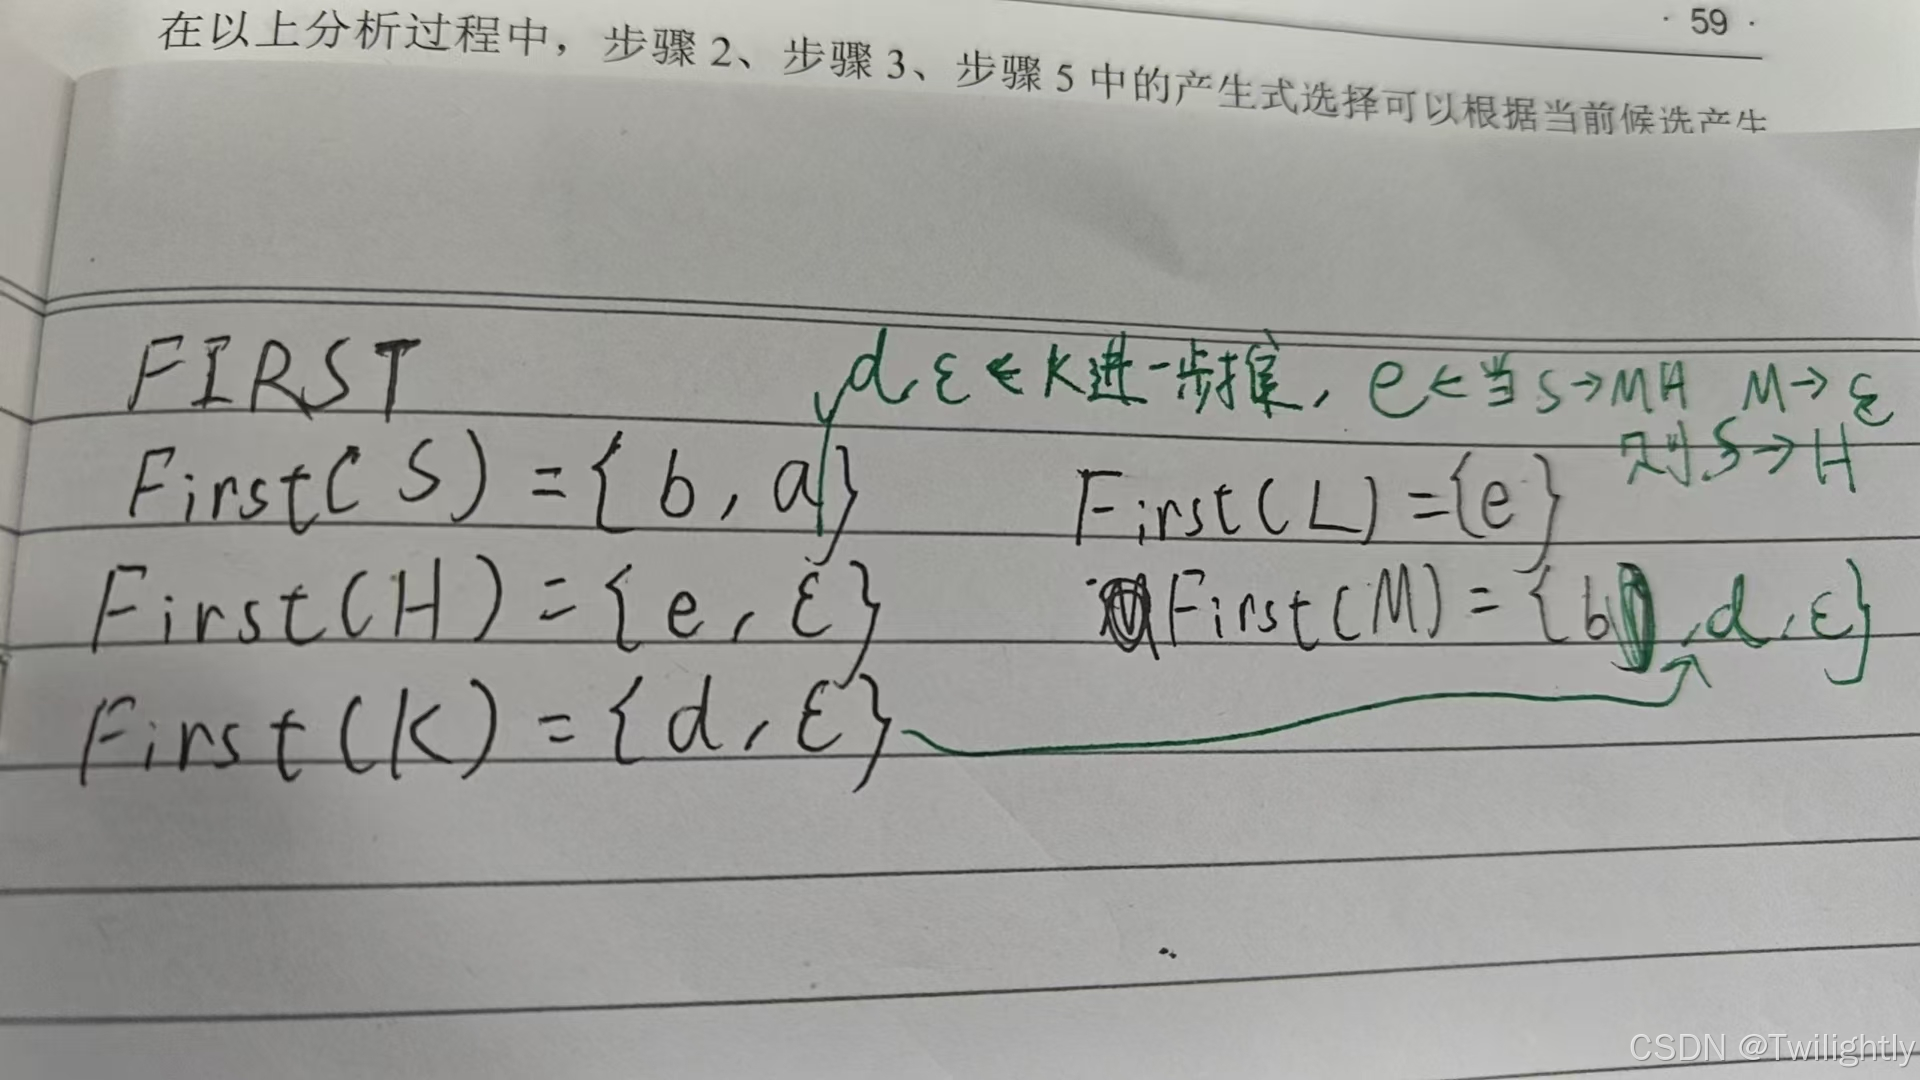 · 59 ·
在以上分析过程中，步骤 2、步骤 3、步骤 5 中的产生式选择可以根据当前候选产生
FIRST
d, ε ← K进一步推, e ← 当 S→MH M→ε
则 S→H
First(S) = {b, a}
First(L) = {e}
First(H) = {e, ε}
First(M) = {b, d, ε}
First(K) = {d, ε}
CSDN @Twilightly